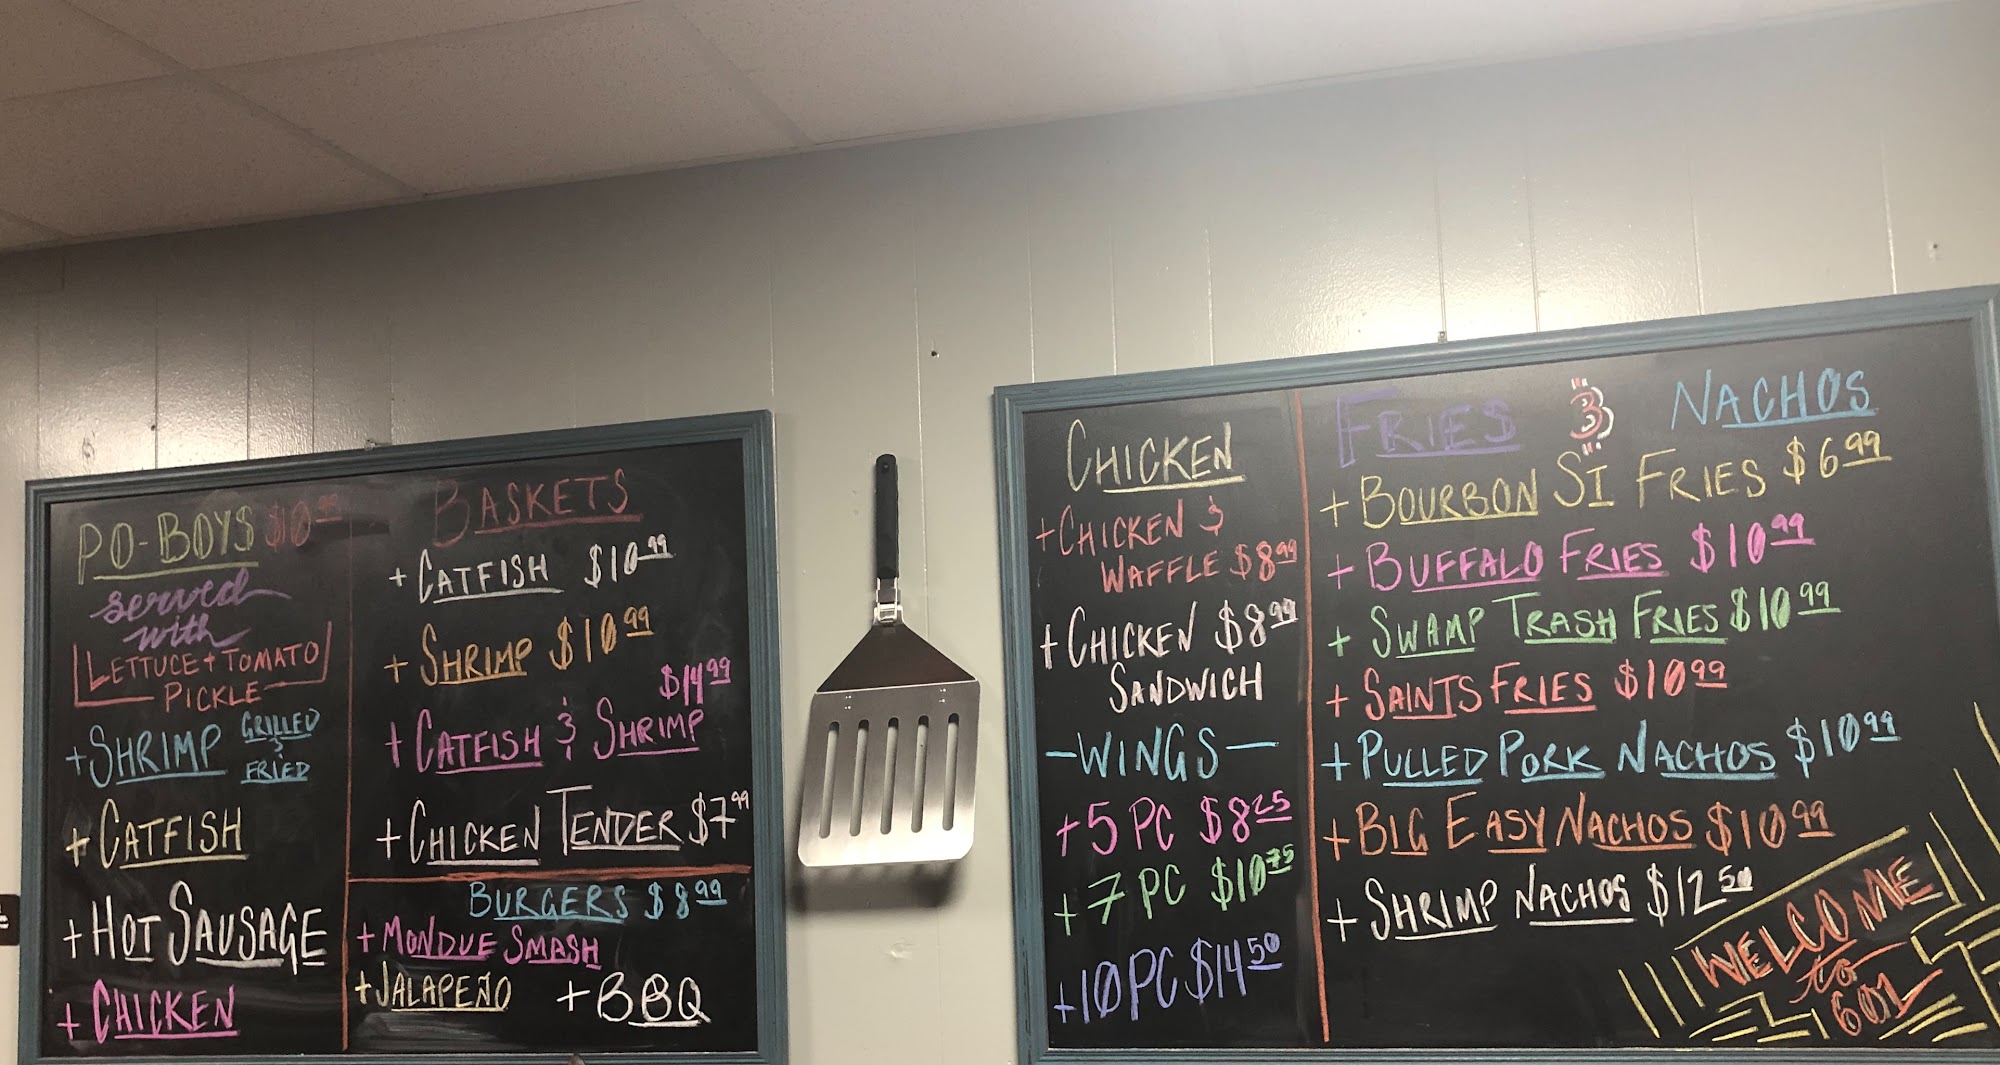 PO-BOYS $10
served
with
LETTUCE + TOMATO
PICKLE
+ SHRIMP GRILLED & FRIED
+ CATFISH
+ HOT SAUSAGE
+ CHICKEN
BASKETS
+ CATFISH $10.99
+ SHRIMP $10.99
$14.99
+ CATFISH & SHRIMP
+ CHICKEN TENDER $7.99
BURGERS $8.99
+ MONDUE SMASH
+ JALAPEÑO + BBQ
CHICKEN
+ CHICKEN &
WAFFLE $8.99
+ CHICKEN $8.99
SANDWICH
- WINGS -
+ 5 PC $8.25
+ 7 PC $10.75
+ 10 PC $14.50
FRIES & NACHOS
+ BOURBON ST FRIES $6.99
+ BUFFALO FRIES $10.99
+ SWAMP TRASH FRIES $10.99
+ SAINTS FRIES $10.99
+ PULLED PORK NACHOS $10.99
+ BIG EASY NACHOS $10.99
+ SHRIMP NACHOS $12.50
WELCOME
to
601